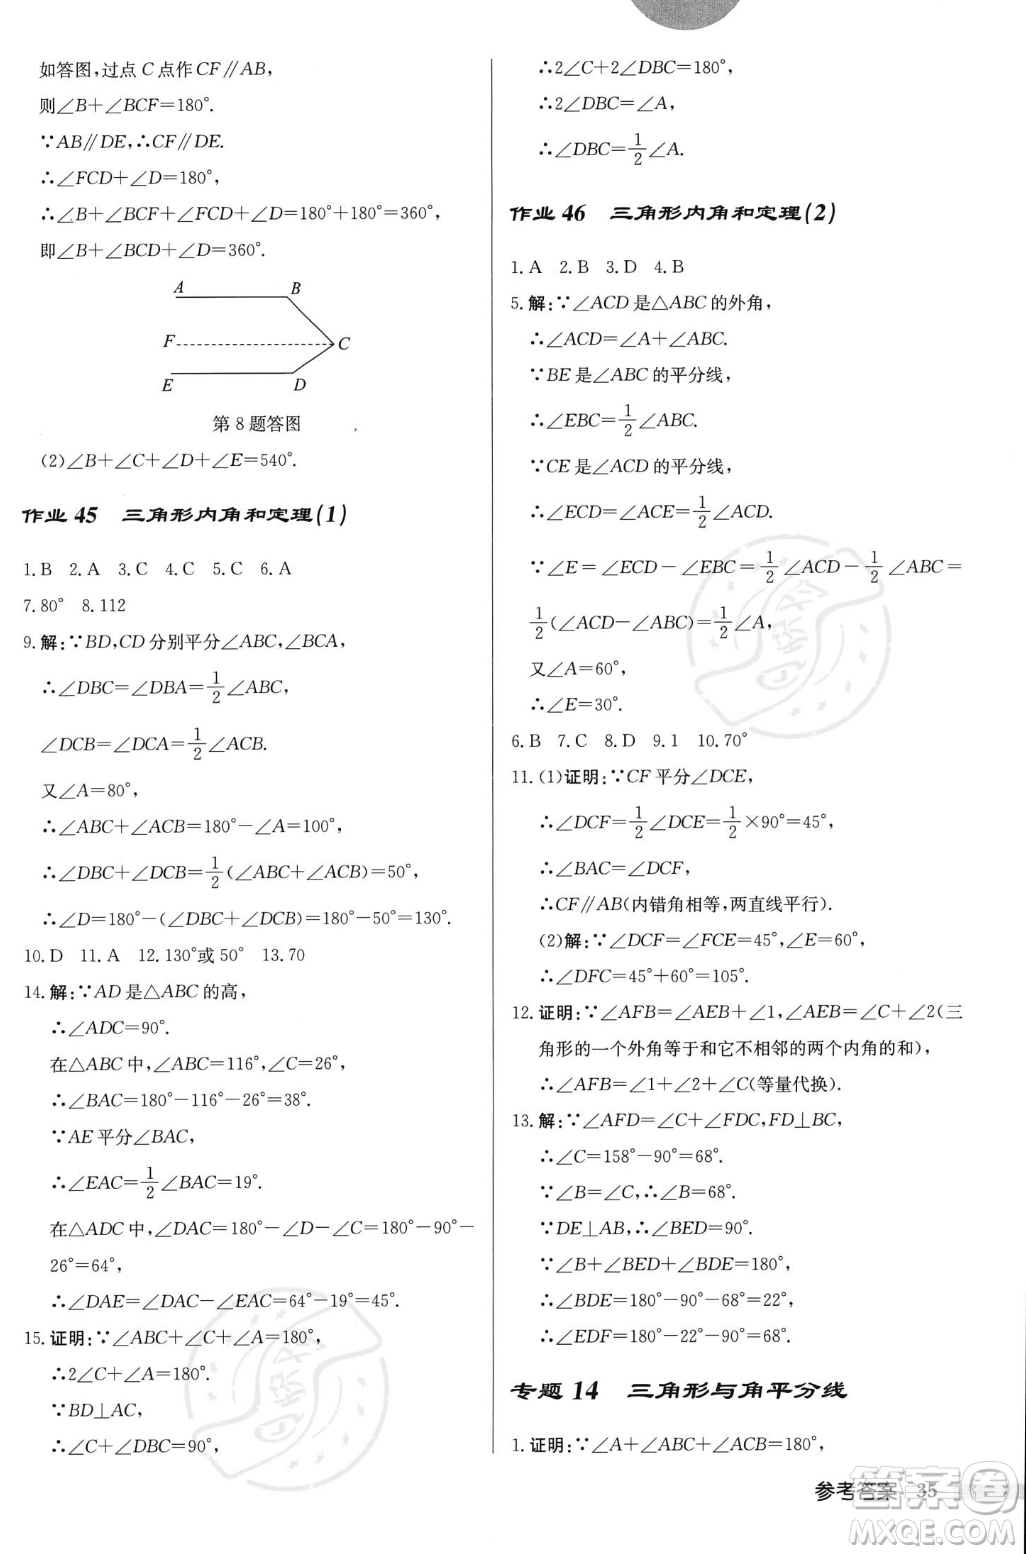 如答图,过点C点作CF∥AB,
则∠B+∠BCF=180°.
∵AB∥DE,∴CF∥DE.
∴∠FCD+∠D=180°,
∴∠B+∠BCF+∠FCD+∠D=180°+180°=360°,
即∠B+∠BCD+∠D=360°.
A B
F C
E D
第8题答图
(2)∠B+∠C+∠D+∠E=540°.
作业45 三角形内角和定理(1)
1.B 2.A 3.C 4.C 5.C 6.A
7.80° 8.112
9.解:∵BD,CD分别平分∠ABC,∠BCA,
∴∠DBC=∠DBA=1/2∠ABC,
∠DCB=∠DCA=1/2∠ACB.
又∠A=80°,
∴∠ABC+∠ACB=180°-∠A=100°,
∴∠DBC+∠DCB=1/2(∠ABC+∠ACB)=50°,
∴∠D=180°-(∠DBC+∠DCB)=180°-50°=130°.
10.D 11.A 12.130°或50° 13.70
14.解:∵AD是△ABC的高,
∴∠ADC=90°.
在△ABC中,∠ABC=116°,∠C=26°,
∴∠BAC=180°-116°-26°=38°.
∵AE平分∠BAC,
∴∠EAC=1/2∠BAC=19°.
在∠ADC中,∠DAC=180°-∠D-∠C=180°-90°-
26°=64°,
∴∠DAE=∠DAC-∠EAC=64°-19°=45°.
15.证明:∵∠ABC+∠C+∠A=180°,
∴2∠C+∠A=180°.
∵BD⊥AC,
∴∠C+∠DBC=90°,
∴2∠C+2∠DBC=180°,
∴2∠DBC=∠A,
∴∠DBC=1/2∠A.
作业46 三角形内角和定理(2)
1.A 2.B 3.D 4.B
5.解:∵∠ACD是△ABC的外角,
∴∠ACD=∠A+∠ABC.
∵BE是∠ABC的平分线,
∴∠EBC=1/2∠ABC.
∵CE是∠ACD的平分线,
∴∠ECD=∠ACE=1/2∠ACD.
∵∠E=∠ECD-∠EBC=1/2∠ACD-1/2∠ABC=
1/2(∠ACD-∠ABC)=1/2∠A,
又∠A=60°,
∴∠E=30°.
6.B 7.C 8.D 9.1 10.70°
11.(1)证明:∵CF平分∠DCE,
∴∠DCF=1/2∠DCE=1/2×90°=45°,
∴∠BAC=∠DCF,
∴CF∥AB(内错角相等,两直线平行).
(2)解:∵∠DCF=∠FCE=45°,∠E=60°,
∴∠DFC=45°+60°=105°.
12.证明:∵∠AFB=∠AEB+∠1,∠AEB=∠C+∠2(三
角形的一个外角等于和它不相邻的两个内角的和),
∴∠AFB=∠1+∠2+∠C(等量代换).
13.解:∵∠AFD=∠C+∠FDC,FD⊥BC,
∴∠C=158°-90°=68°.
∵∠B=∠C,∴∠B=68°.
∵DE⊥AB,∴∠BED=90°.
∵∠B+∠BED+∠BDE=180°,
∴∠BDE=180°-90°-68°=22°,
∴∠EDF=180°-22°-90°=68°.
专题14 三角形与角平分线
1.证明:∵∠A+∠ABC+∠ACB=180°,
参考答案 35
答案圈
MXQE.COM